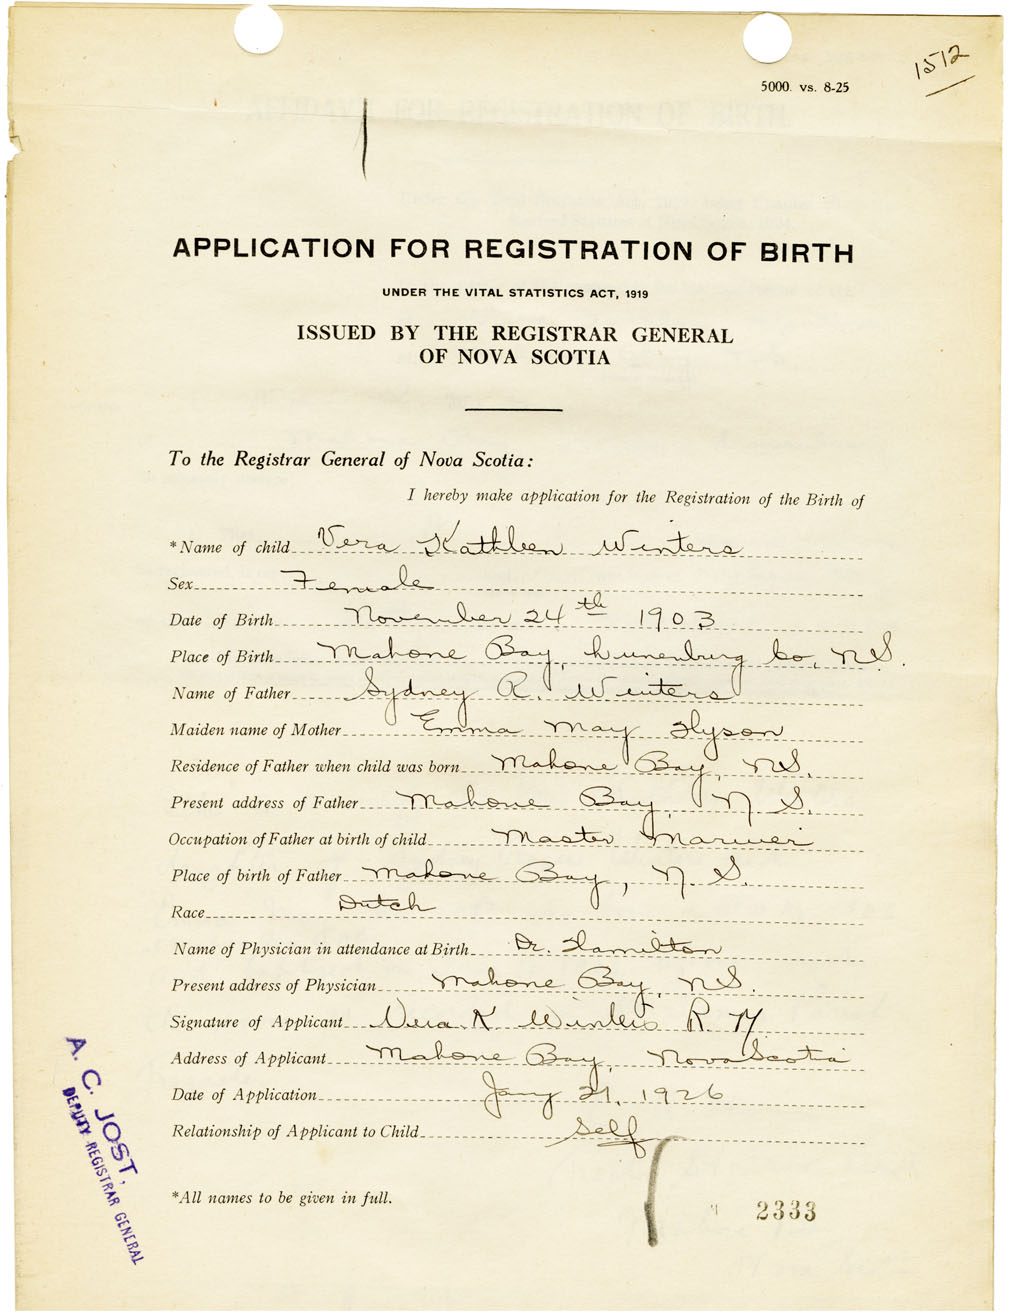 1512
5000. vs. 8-25
APPLICATION FOR REGISTRATION OF BIRTH
UNDER THE VITAL STATISTICS ACT, 1919
ISSUED BY THE REGISTRAR GENERAL
OF NOVA SCOTIA
To the Registrar General of Nova Scotia:
I hereby make application for the Registration of the Birth of
*Name of child Vera Kathleen Winters
Sex Female
Date of Birth November 24th 1903
Place of Birth Mahone Bay, Lunenburg Co, N.S.
Name of Father Sydney R. Winters
Maiden name of Mother Emma May Hyson
Residence of Father when child was born Mahone Bay, N.S.
Present address of Father Mahone Bay, N.S.
Occupation of Father at birth of child Master Mariner
Place of birth of Father Mahone Bay, N.S.
Race Dutch
Name of Physician in attendance at Birth Dr. Hamilton
Present address of Physician Mahone Bay, N.S.
Signature of Applicant Vera K Winters R N
Address of Applicant Mahone Bay, Nova Scotia
Date of Application Jany 21, 1926
Relationship of Applicant to Child Self
*All names to be given in full.
2333
A. C. JOST,
DEPUTY REGISTRAR GENERAL